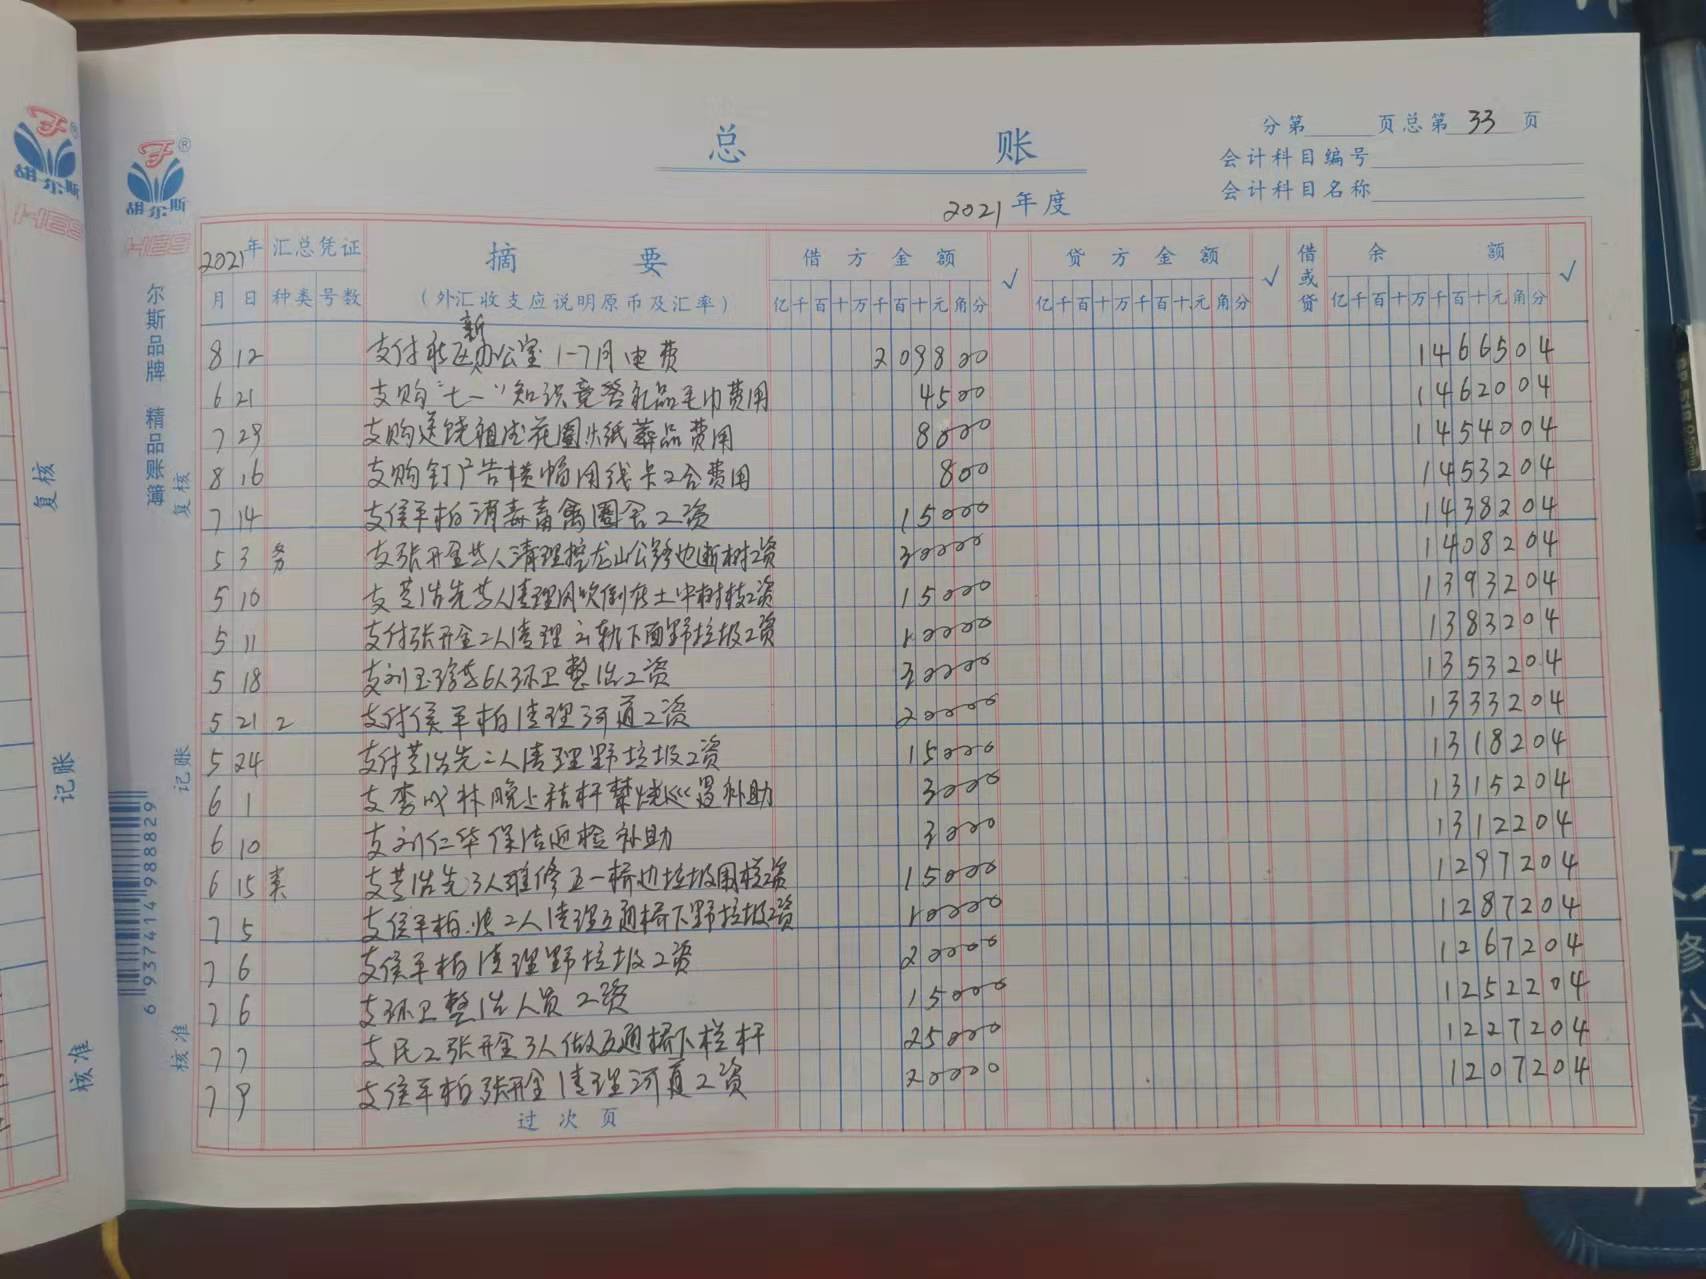 总 账
分第 页总第 33 页
会计科目编号
会计科目名称
2021 年度
2021年 汇总凭证 摘 要 借方金额 √ 贷方金额 √ 借或贷 余 额 √
月 日 种类 号数 (外汇收支应说明原币及汇率) 亿千百十万千百十元角分 亿千百十万千百十元角分 亿千百十万千百十元角分
8 12 支付社区新办公室1-7月电费 209800 1466504
6 21 支购"七一"知识竞答礼品毛巾费用 4500 1462004
7 29 支购送饶祖成花圈火纸葬品费用 8000 1454004
8 16 支购钉广告横幅用线卡2合费用 800 1453204
7 14 支侯平柏消毒畜禽圈舍工资 15000 1438204
5 3 支张开金等人清理挖龙山公路边断树工资 30000 1408204
5 10 支 浩先等人清理风吹倒在土中树枝工资 15000 1393204
5 11 支付张开金二人清理 下面野垃圾工资 10000 1383204
5 18 支刘玉珍等6人环卫整治工资 30000 1353204
5 21 2 支付侯平柏清理河道工资 20000 1333204
5 24 支付 浩先二人清理野垃圾工资 15000 1318204
6 1 支李成林晚上秸秆禁烧巡逻补助 3000 1315204
6 10 支刘仁华保洁巡检补助 3000 1312204
6 15 支 浩先3人维修五一桥边垃圾围栏工资 15000 1297204
7 5 支侯平柏.张二人清理五通桥下野垃圾工资 10000 1287204
7 6 支侯平柏清理野垃圾工资 20000 1267204
7 6 支环卫整治人员工资 15000 1252204
7 7 支民工张开金3人做五通桥下栏杆 25000 1227204
7 9 支侯平柏张开金清理河道工资 20000 1207204
过次页
胡尔斯
HBS
尔斯品牌 精品账簿
复核
记账
核准
6 937414 988829
胡尔斯
HBS
复核
记账
核准